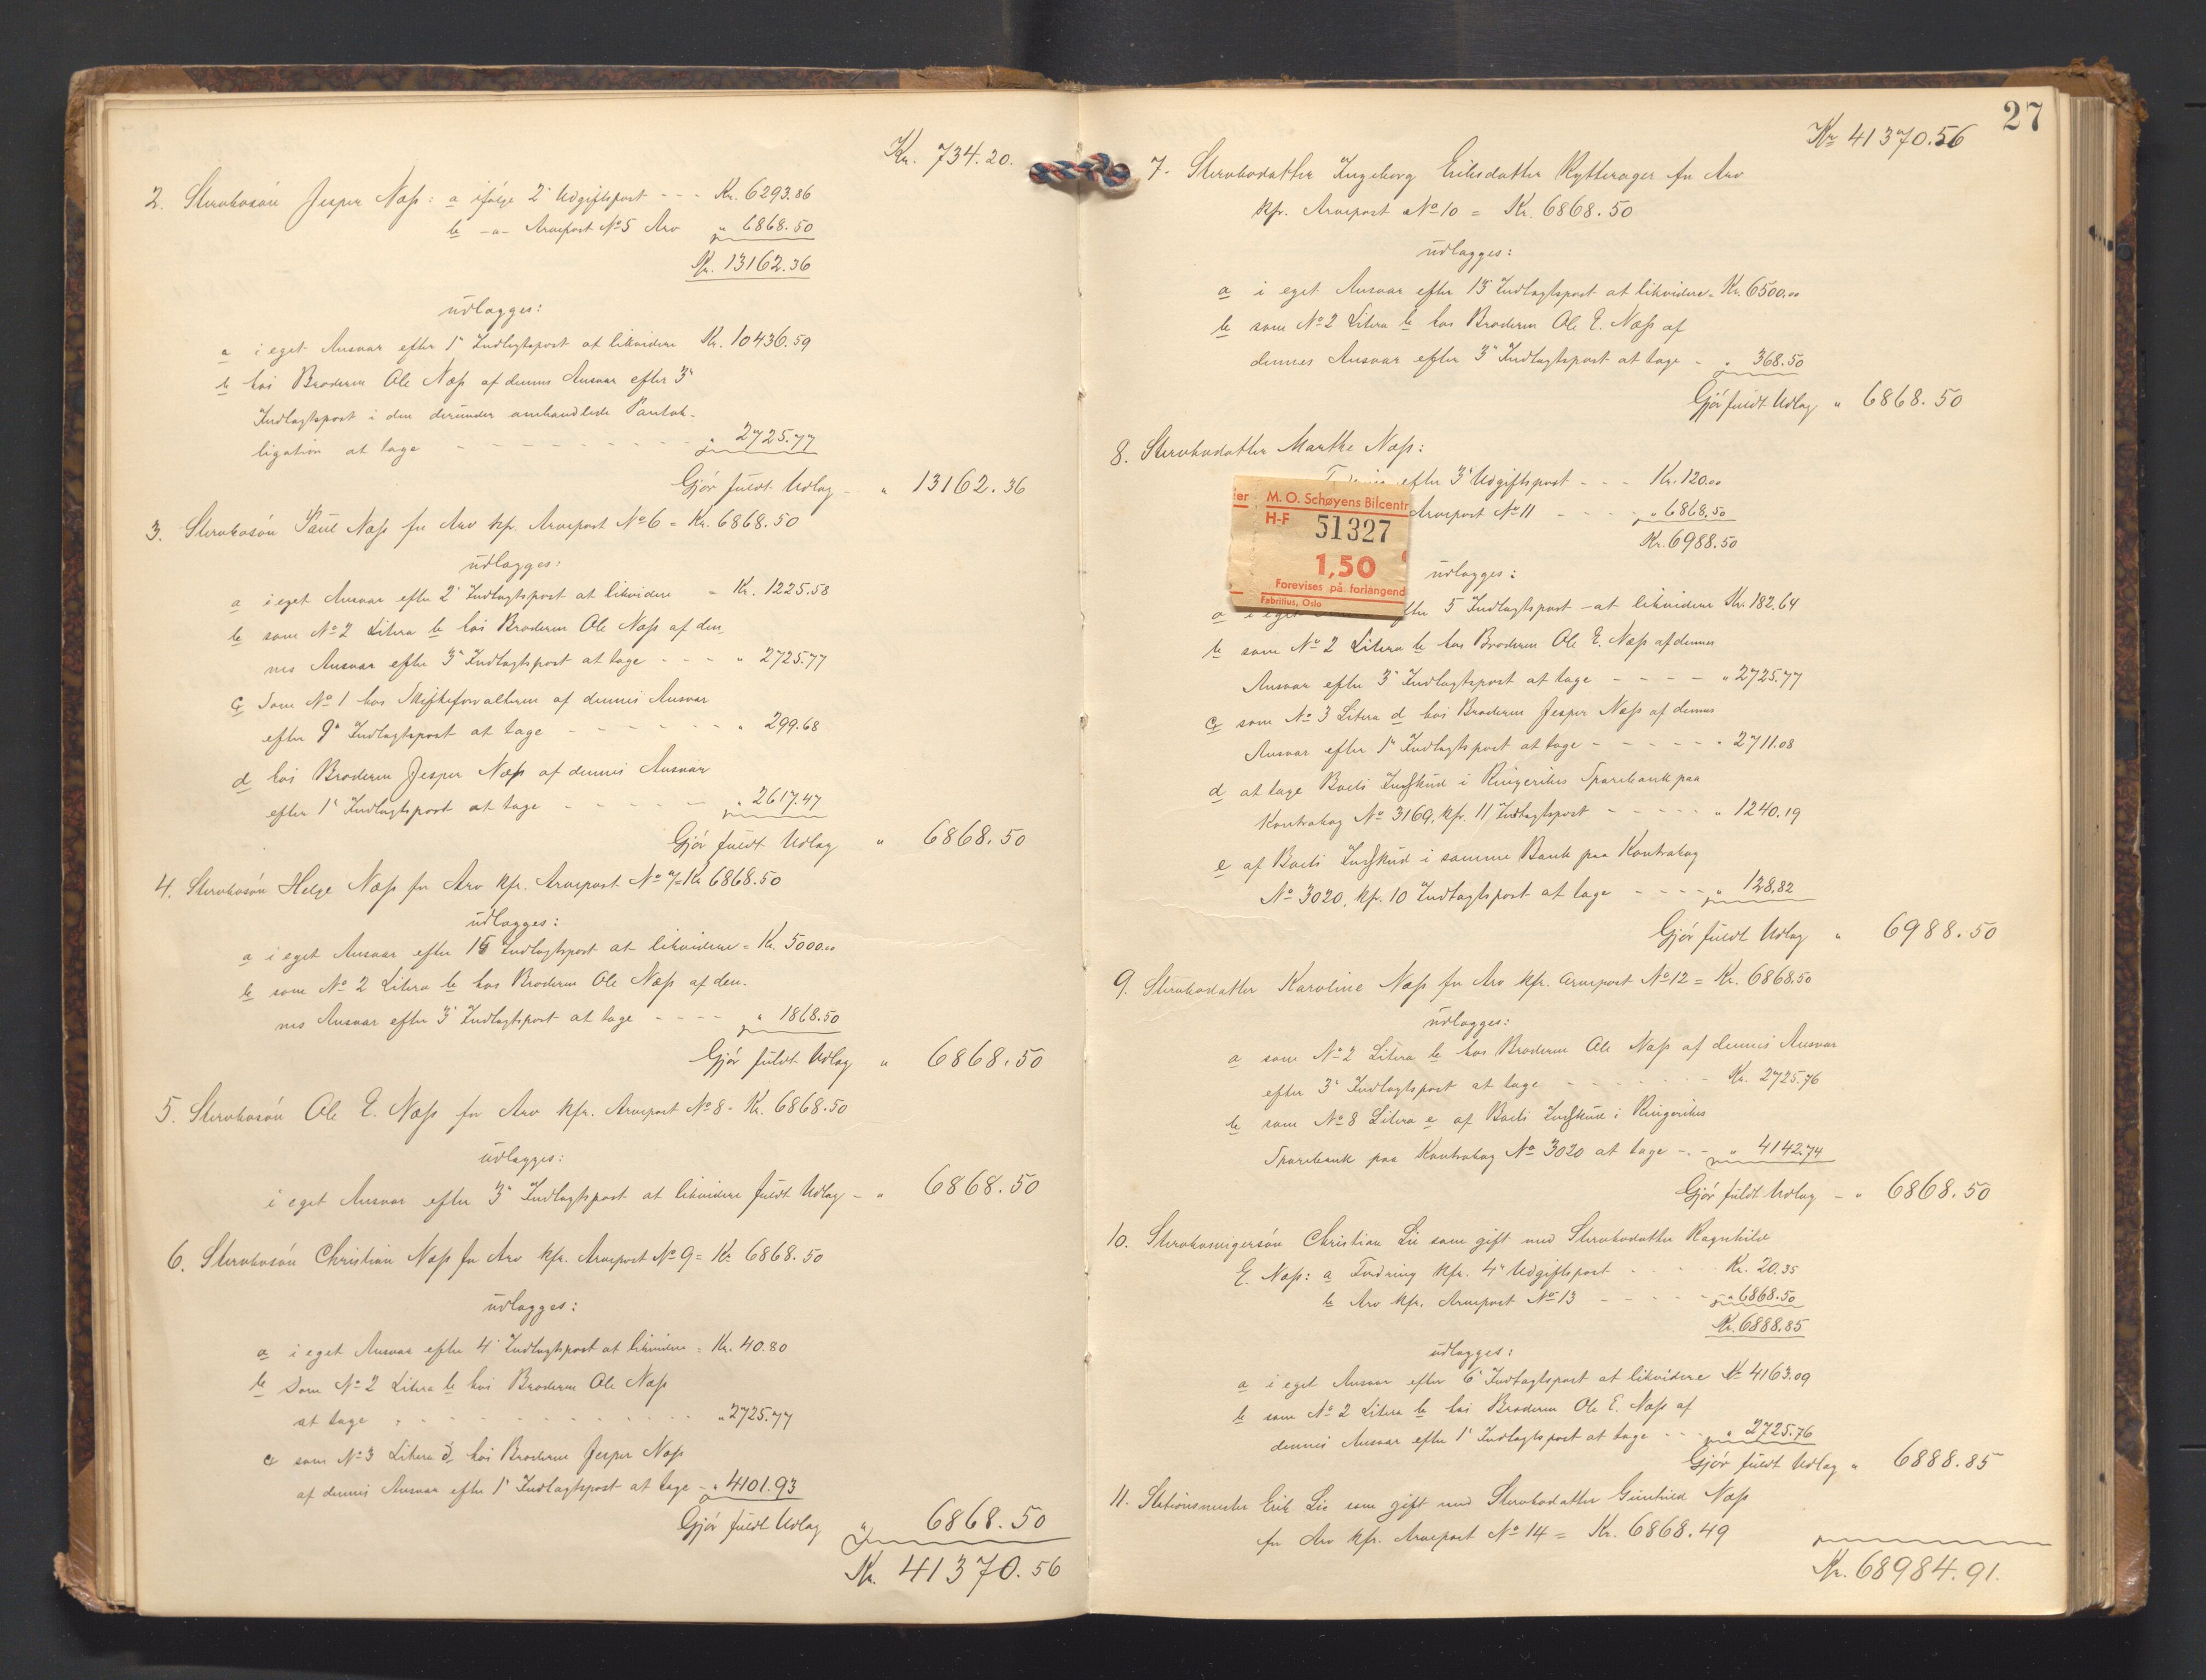 Kr. 734.20.
2. Stervbosøn Jesper Næss: a ifølge 2' Udgiftspost - - - Kr. 6293.86
b -"- Arvepost No 5 Arv " 6868.50
Kr. 13162.36
udlægges:
a i eget Ansvar efter 1' Indtægtspost at likvidere Kr. 10436.59
b hos Broderen Ole Næss af dennes Ansvar efter 3'
Indtægtspost i den derunder omhandlede Pantob-
ligation at tage - - - - - - - - " 2725.77
Gjør fuldt Udlæg - " 13162.36
3. Stervbosøn Paul Næss for Arv kfr. Arvepost No 6 = Kr. 6868.50
udlægges:
a i eget Ansvar efter 2' Indtægtspost at likvidere = Kr. 1225.58
b som No 2 Litera b hos Broderen Ole Næss af den-
nes Ansvar efter 3' Indtægtspost at tage - - - " 2725.77
c Som No 1 hos Skifteforvalteren af dennes Ansvar
efter 9' Indtægtspost at tage - - - - - - " 299.68
d hos Broderen Jesper Næss af dennes Ansvar
efter 1' Indtægtspost at tage - - - - - - " 2617.47
Gjør fuldt Udlæg " 6868.50
4. Stervbosøn Helge Næss for Arv kfr. Arvepost No 7 = Kr 6868.50
udlægges:
a i eget Ansvar efter 16 Indtægtspost at likvidere = Kr. 5000.00
b som No 2 Litera b hos Broderen Ole Næss af den-
nes Ansvar efter 3' Indtægtspost at tage - - - - " 1868.50
Gjør fuldt Udlæg " 6868.50
5. Stervbosøn Ole E. Næss for Arv kfr. Arvepost No 8 = Kr. 6868.50
udlægges:
i eget Ansvar efter 3' Indtægtspost at likvidere fuldt Udlæg - " 6868.50
6. Stervbosøn Christian Næss for Arv kfr. Arvepost No 9 = Kr 6868.50
udlægges:
a i eget Ansvar efter 4' Indtægtspost at likvidere = Kr. 40.80
b Som No 2 Litera b hos Broderen Ole Næss
at tage - - - - - - - - - - " 2725.77
c som No 3 Litera d hos Broderen Jesper Næss
af dennes Ansvar efter 1' Indtægtspost at tage - " 4101.93
Gjør fuldt Udlæg " 6868.50
Kr. 41370.56
27
Kr 41370.56
7. Stervbodatter Ingeborg Eriksdatter Rytterager for Arv
kfr. Arvepost No 10 = Kr. 6868.50
udlægges:
a i eget Ansvar efter 15 Indtægtspost at likvidere = Kr. 6500.00
b som No 2 Litera b hos Broderen Ole E. Næss af
dennes Ansvar efter 3' Indtægtspost at tage - " 368.50
Gjør fuldt Udlæg " 6868.50
8. Stervbodatter Marthe Næss:
efter 3' Udgiftspost - - - Kr. 120.00
Arvepost No 11 - - - - " 6868.50
Kr. 6988.50
er M. O. Schøyens Bilcentr
H-F 51327
1,50
Forevises på forlangend
Fabritius, Oslo
udlægges:
a i eget efter 5 Indtægtspost - at likvidere Kr. 182.64
b som No 2 Litera b hos Broderen Ole E. Næss af dennes
Ansvar efter 3' Indtægtspost at tage - - - - " 2725.77
c som No 3 Litera d hos Broderen Jesper Næss af dennes
Ansvar efter 1' Indtægtspost at tage - - - - - " 2711.08
d at tage Boets Indskud i Ringerikes Sparebank paa
Kontrabog No 3169, kfr. 11 Indtægtspost - - - - - " 1240.19
e af Boets Indskud i samme Bank paa Kontrabog
No 3020, kfr. 10 Indtægtspost at tage - - - - " 128.82
Gjør fuldt Udlæg " 6988.50
9. Stervbodatter Karoline Næss for Arv kfr. Arvepost No 12 = Kr. 6868.50
udlægges:
a som No 2 Litera b hos Broderen Ole Næss af dennes Ansvar
efter 3' Indtægtspost at tage - - - - - - - Kr. 2725.76
b som No 8 Litera e af Boets Indskud i Ringerikes
Sparebank paa Kontrabog No 3020 at tage - - " 4142.74
Gjør fuldt Udlæg - " 6868.50
10. Stervbosvigersøn Christian Lie som gift med Stervbodatter Ragnhild
E. Næss: a Fordring kfr. 4' Udgiftspost - - - - Kr. 20.35
b Arv kfr. Arvepost No 13 - - - - - " 6868.50
Kr. 6888.85
udlægges:
a i eget Ansvar efter 6' Indtægtspost at likvidere Kr 4163.09
b som No 2 Litera b hos Broderen Ole E. Næss af
dennes Ansvar efter 1' Indtægtspost at tage - - - " 2725.76
Gjør fuldt Udlæg " 6888.85
11. Stationsmester Erik Lie som gift med Stervbodatter Gunhild Næss
for Arv kfr. Arvepost No 14 = Kr. 6868.49
Kr. 68984.91.